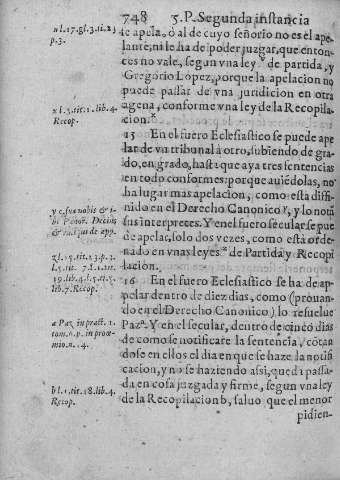 748 5.P.Segunda instancia
n l.17.gl.3.ti.23
p.3.
se apela, ò al de cuyo señorio no es el ape-
lante, ni le ha de poder juzgar, que enton-
ces no vale, segun vna ley de partida, y
Gregorio Lopez, porque la apelacion no
puede passar de vna juridicion en otra
agena, conforme vna ley de la Recopila-
cion.
x l.5.tit.1.lib.4.
Recop.
15 En el fuero Eclesiastico se puede ape
lar de vn tribunal à otro, subiendo de gra-
do, en grado, hasta que aya tres sentencias
en todo conformes: porque auiẽdolas, no
ha lugar mas apelacion, como esta difi-
nido en el Derecho Canonico y, y lo notã
sus interpretes. Y en el fuero secular se pue
de apelar, solo dos vezes, como està orde-
nado en vnas leyes de Partida y Recopi
lación.
y c. sua nobis & i-
bi
& in
de app.
zl.15.tit.23.p.3.
l.5.tit.
19.lib.4.l.5.ti.5.
lib.7.Recop.
16 En el fuero Eclesiastico se ha de ap-
pelar dentro de diez dias, como (prouan-
do en el Derecho Canonico) lo resuelue
Paz a. Y en el secular, dentro de cinco dias
de como se notificare la sentencia, cõtan
dose en ellos el dia en que se haze la notifi
cacion, y no se haziendo assi, queda passa-
da en cosa juzgada y firme, segun vna ley
de la Recopilacion b, saluo que el menor
a Paz in pract. 1.
tom. 6.p. in proœ-
mio n. 4.
b l.1.tit.18.lib.4.
Recop.
pidien-